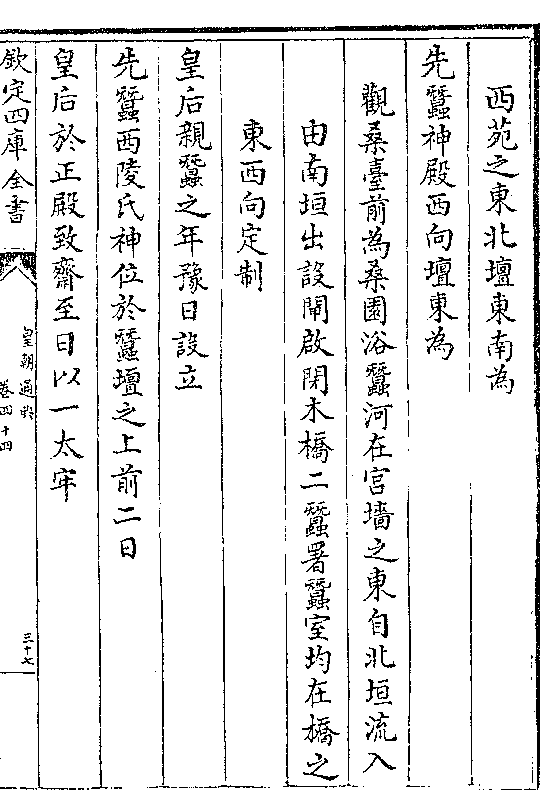 西苑之東北壇東南為
先蠶神殿西向壇東為
觀桑臺前為桑園浴蠶河在宮墻之東自北垣流入
由南垣出設閘啟閉木橋二蠶署蠶室均在橋之
東西向定制
皇后親蠶之年豫日設立
先蠶西陵氏神位於蠶壇之上前二日
皇后於正殿致齋至日以一太牢
欽定四庫全書
皇朝通典
卷四十四
三十七